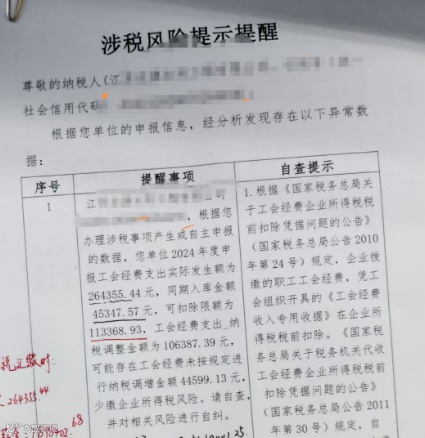 涉税风险提示提醒
尊敬的纳税人(江
社会信用代码
根据您单位的申报信息，经分析发现存在以下异常数
据：
序号
提醒事项
自查提示
1
江
司
，根据您
办理涉税事项产生或自主申报
的数据，您单位2024年度申
报工会经费支出实际发生额为
264355.44元，同期入库金额
45347.57元，可扣除限额为
113368.93，工会经费支出_纳
税调整金额为106387.39元，
可能存在工会经费未按规定进
行纳税调增金额44599.13元，
少缴企业所得税风险。请自查，
并对相关风险进行自纠。
1.根据《国家税务总局关
于工会经费企业所得税税
前扣除凭据问题的公告》
（国家税务总局公告2010
年第24号）规定，企业拨
缴的职工工会经费，凭工
会组织开具的《工会经费
收入专用收据》在企业所
得税税前扣除。《国家税
务总局关于税务机关代收
工会经费企业所得税税前
扣除凭据问题的公告》
（国家税务总局公告2011
年第30号）规定，自
264355.44
68